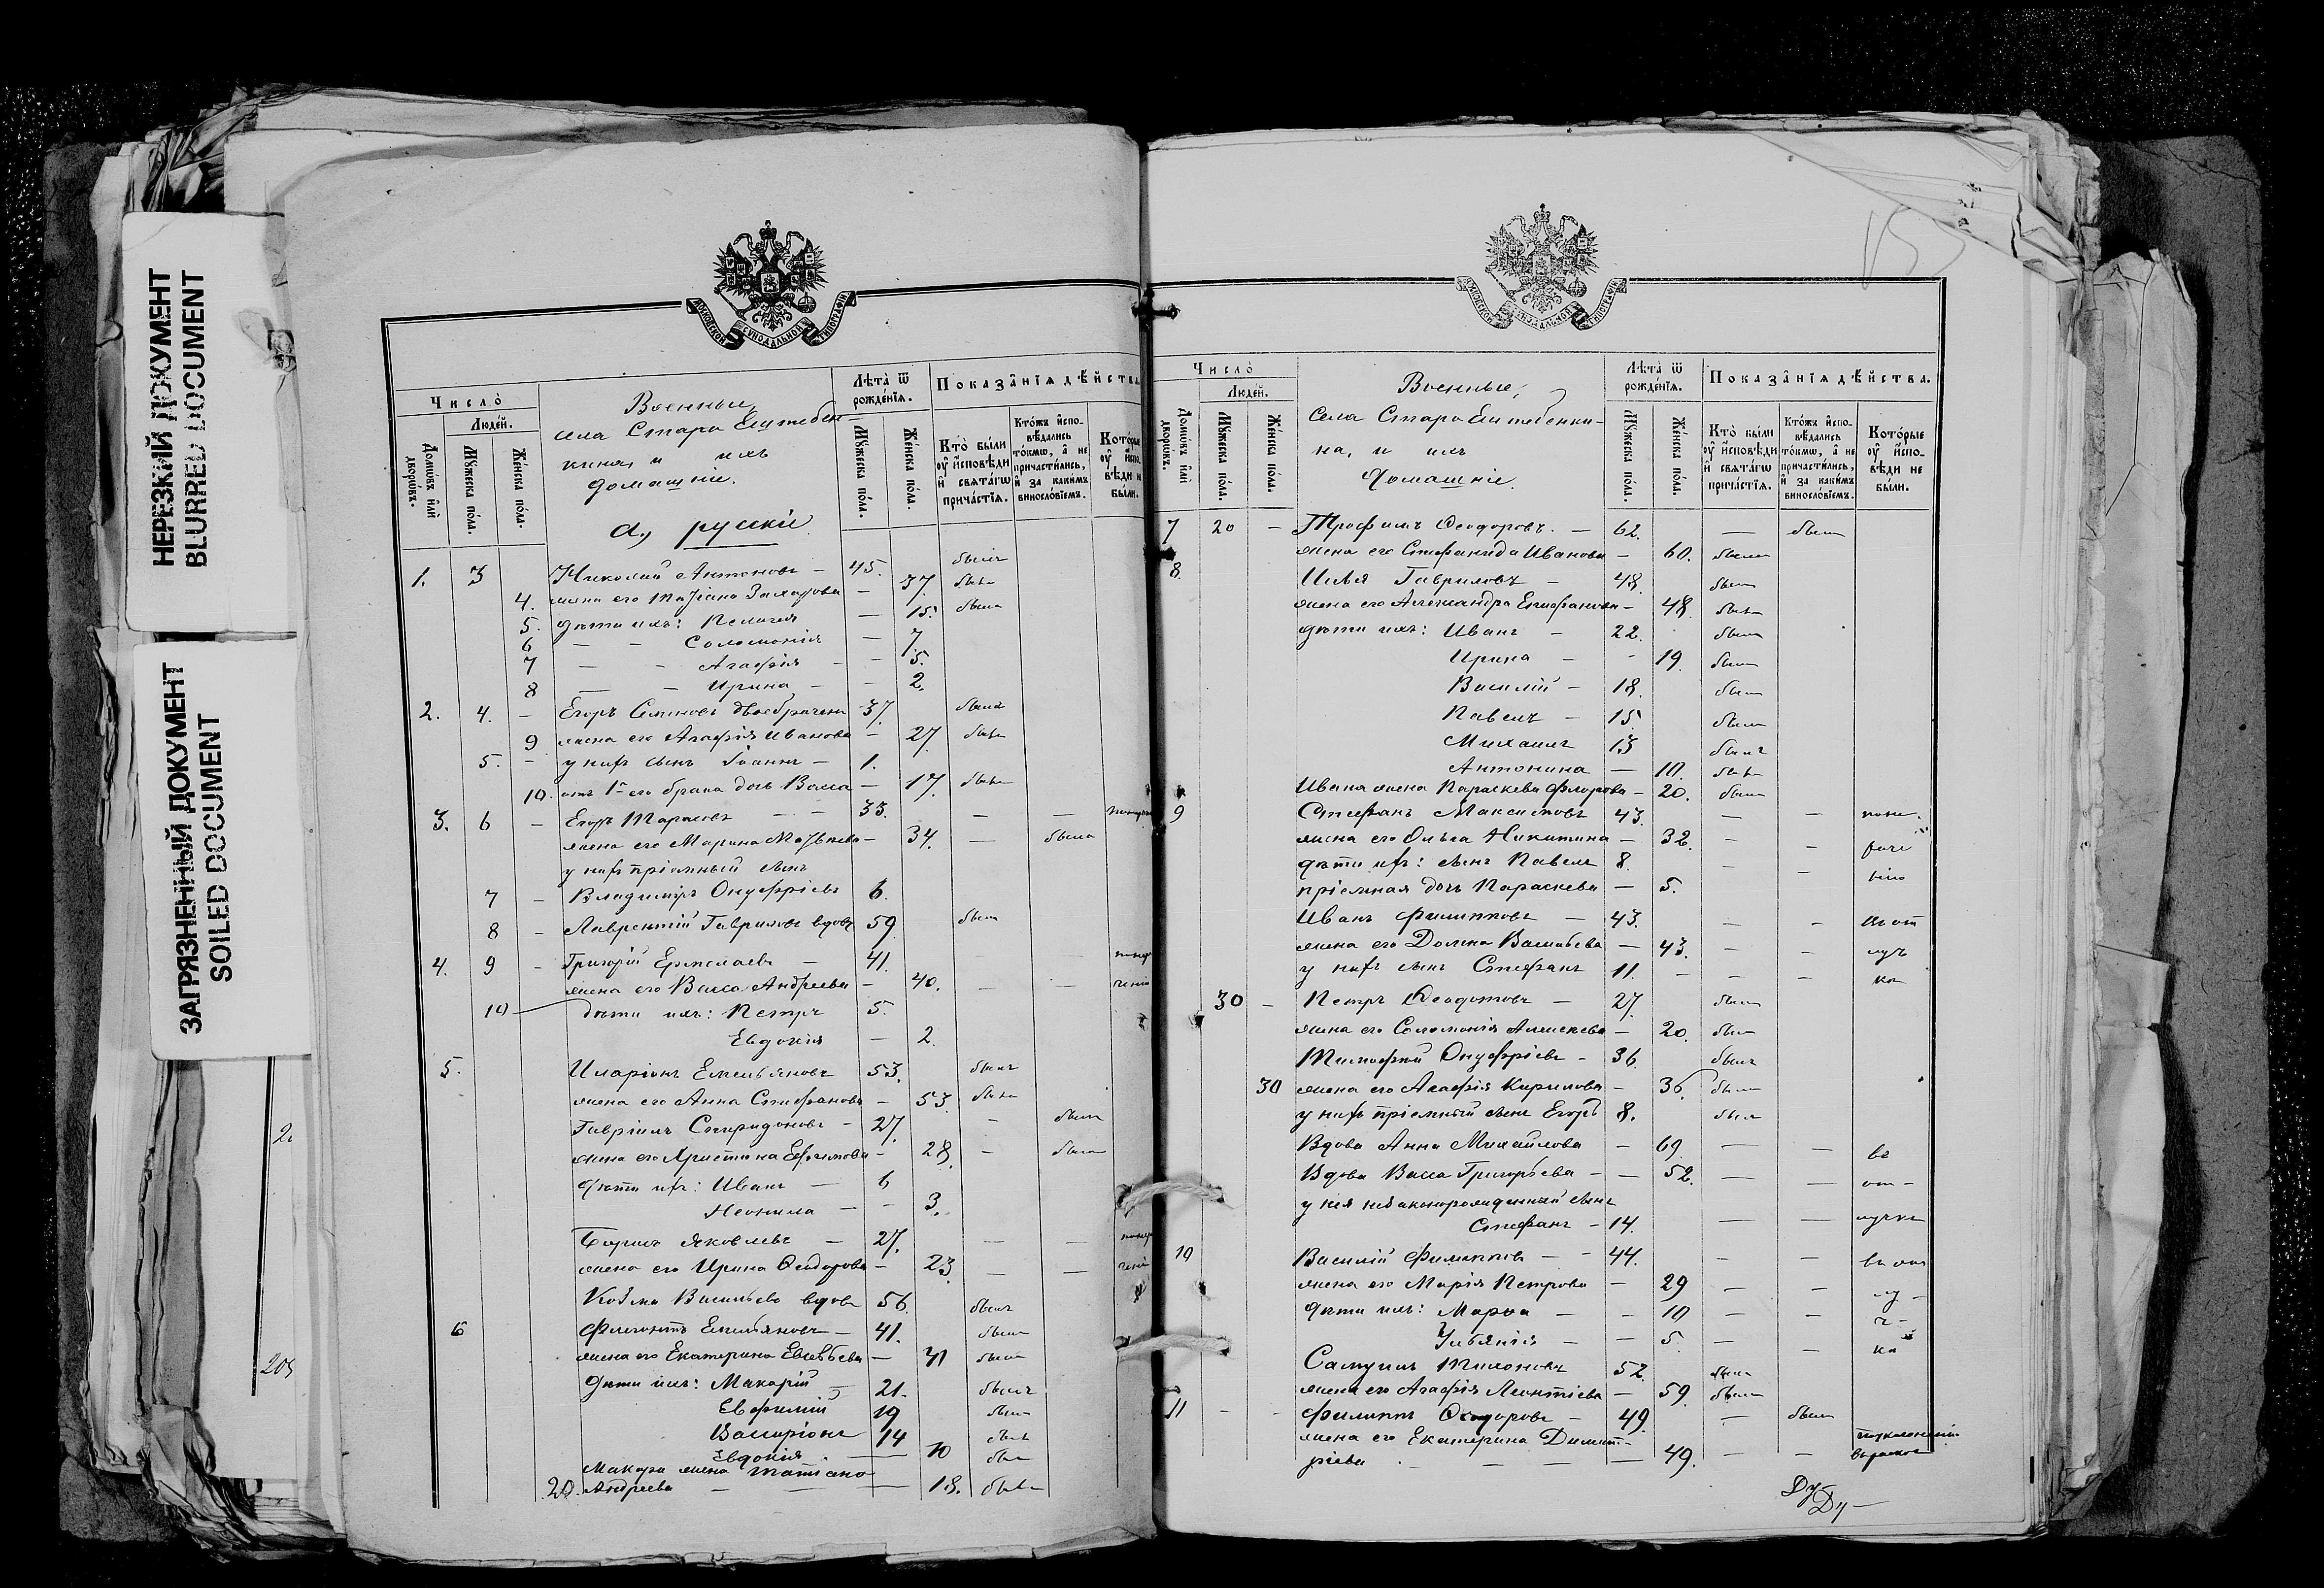 НЕРЕЗКИЙ ДОКУМЕНТ
BLURRED DOCUMENT
ЗАГРЯЗНЕННЫЙ ДОКУМЕНТ
SOILED DOCUMENT
МОСКОВСКОЙ СѴНОДАЛЬНОЙ ТИПОГРАФІИ
Число̀
Люде́й.
Домѡ́въ и҆лѝ дворѡ́въ.
Мꙋ́жеска по́ла.
Же́нска по́ла.
Военные,
села Старо
кина, и ихъ
домашніе.
а., русскіе
Лѣта̀ ѿ рожде́нїѧ.
Мꙋ́жеска по́ла.
Же́нска по́ла.
Показа̑нїѧ дѣ́йства
Кто̀ бы́ли ᲂу҆ и҆сповѣ́ди и҆ свѧта́гѡ прича́стїѧ.
Кто́жъ и҆сповѣ́дались то́кмѡ, а҆ не причасти́лись, и҆ за каки́мъ виносло́вїемъ.
Кото́рые ᲂу҆ и҆сповѣ́ди не бы́ли.
1. 3 Николай Антоновъ – 45. былъ
4. жена его Татіана Захарова – 37. была
5. дѣти ихъ: Пелагея – 15. была
6 – – Соломонія – 7.
7 – – Агафія – – 5.
8 – – Ирина – – 2.
2. 4. – Егоръ Семеновъ двоебрачный 37. былъ
9 жена его Агафія Иванова – 27. была
5. – у нихъ сынъ Іоаннъ – 1.
10. отъ 1го его брака дочь Васса – 17. была
3. 6 – Егоръ Тарасовъ – – 33. – –
жена его Марина Матвѣева – 34. – была
у нихъ пріемный сынъ
7 – Владиміръ Онуфріевъ 6.
8 – Лаврентій Гавриловъ вдовъ 59 былъ
4. 9 – Григорій Ермолаевъ – 41. – –
жена его Васса Андреева – 40. – –
10 – дѣти ихъ: Петръ 5.
Евдокія – 2.
5. Иларіонъ Емельяновъ 53. былъ
жена его Анна Стефанова – 53. была
Гавріилъ Спиридоновъ – 27. – былъ
жена его Христина Ефимова – 28. – была
дѣти ихъ: Иванъ – 6
Неонила – – 3.
Яковлевъ – 27. – –
жена его Ирина Феодорова – 23. – –
Козма Васильевъ вдовъ 56. былъ
6 Емельяновъ – 41. былъ
жена его Екатерина – 41 была
дѣти ихъ: Макарій – 21. былъ
Евфимій 19 былъ
14 былъ
Евдокія – 10 была
Макара жена Татіана
20. Андреева – – – 18. была
Число̀
Люде́й.
Домѡ́въ и҆лѝ дворѡ́въ.
Мꙋ́жеска по́ла.
Же́нска по́ла.
Военные,
села Старо
на, и ихъ
домашніе.
Лѣта̀ ѿ рожде́нїѧ.
Мꙋ́жеска по́ла.
Же́нска по́ла.
Показа̑нїѧ дѣ́йства.
Кто̀ бы́ли ᲂу҆ и҆сповѣ́ди и҆ свѧта́гѡ прича́стїѧ.
Кто́жъ и҆сповѣ́дались то́кмѡ, а҆ не причасти́лись, и҆ за каки́мъ виносло́вїемъ.
Кото́рые ᲂу҆ и҆сповѣ́ди не бы́ли.
7 20 – Трофимъ Феодоровъ. – 62. – былъ
жена его Стефанида Иванова – 60. была
8. Илья Гавриловъ – 48. былъ
жена его Александра Епифанова – 48. была
дѣти ихъ: Иванъ – 22. былъ
Ирина – – 19. была
Василій – 18. былъ
Павелъ – 15 былъ
Михаилъ 13 былъ
Антонина – 10. была
Ивана жена Параскева Флорова – 20. была
9 Стефанъ Максимовъ 43. – –
жена его Ольга Никитина – 32. – –
дѣти ихъ: сынъ Павелъ 8. – –
пріемная дочь Параскева – 5.
Иванъ Филипповъ – 43. – – въ от
жена его Домна Васильева – 43. – – луч
у нихъ сынъ Стефанъ 11. – – – ке
30 – Петръ Феодотовъ – 27. былъ
жена его Соломонія Алексѣева – 20. была
Тимофей Онуфріевъ – 36. былъ
30 жена его Агафія Кирилова – 36. была
у нихъ пріемный сынъ Егоръ 8. былъ
Вдова Анна Михайлова – 69. – – въ
Вдова Васса Григорьева – – 52. – – от –
у нея незаконорожденный сынъ
Стефанъ – 14. – – лучке
10 Василій Филипповъ – – 44. – – въ от
жена его Марія Петрова – 29 – – лу –
дѣти ихъ: Марѳа – – 10 – – ч –
Уліянія – – 5. – – ке
Самуилъ 52. былъ
жена его Агафія Леонтіева – 59. была
11 – – Филиппъ Феодоровъ – 49. – былъ
жена его Екатерина Димит-
ріева – – – – 49. – –
Ду-
Ду –